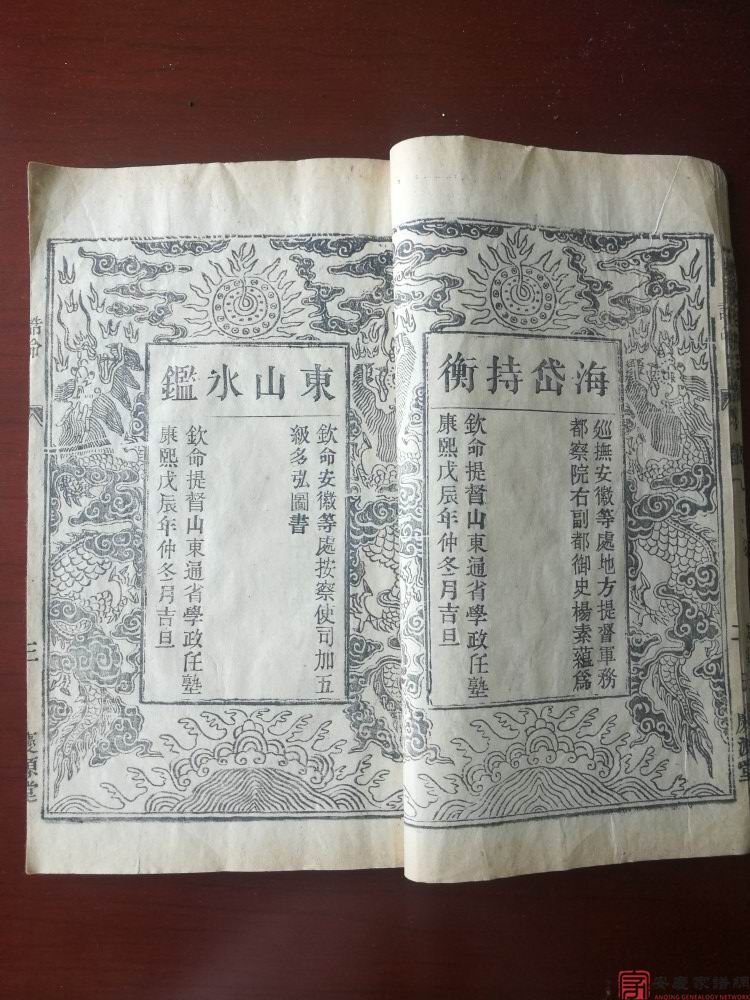 海岱持衡
巡撫安徽等處地方提督軍務
都察院右副都御史楊素蘊爲
欽命提督山東通省學政任塾
康熙戊辰年仲冬月吉旦
東山氷鑑
欽命安徽等處按察使司加五
級多弘圖書
欽命提督山東通省學政任塾
康熙戊辰年仲冬月吉旦
誥命
三
源堂
二
安慶家譜網
ANQING GENEALOGY NETWORK